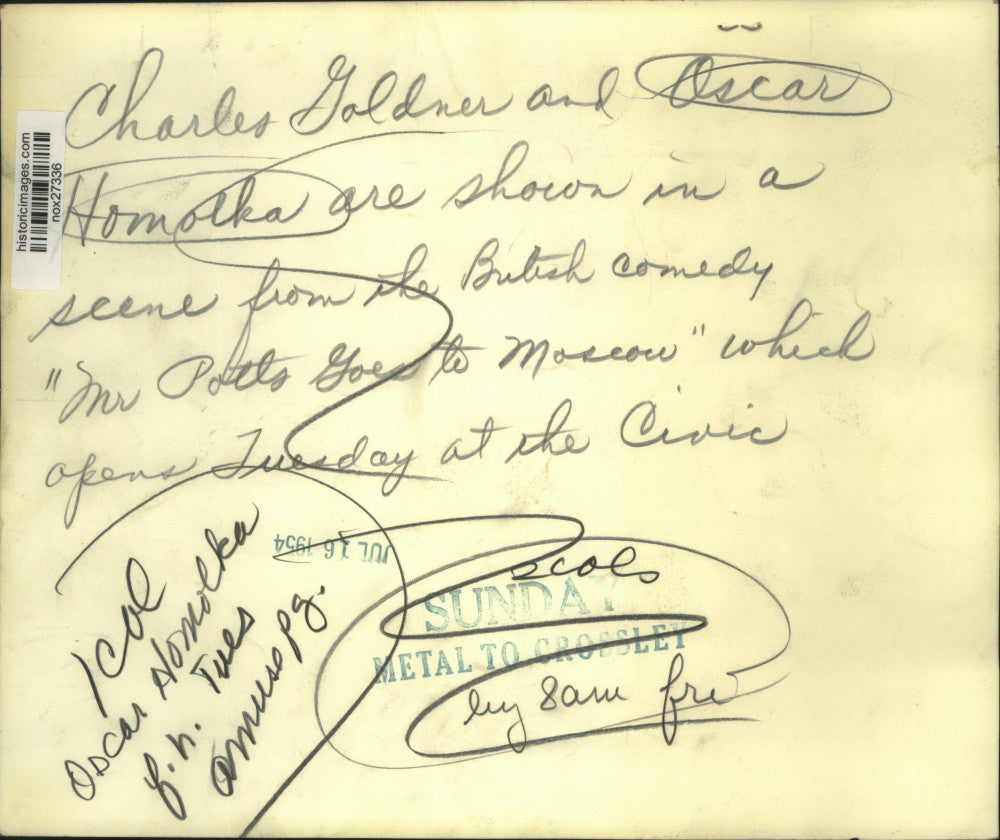 Charles Goldner and Oscar
Homolka are shown in a
scene from the British comedy
"Mr Potts Goes to Moscow" which
opens Tuesday at the Civic
historicimages.com
nox27336
JUL 16 1954
1 col
Oscar Homolka
f.n. Tues
amuse pg.
2 cols
SUNDAY
METAL TO CROSSLEY
by 8am fri